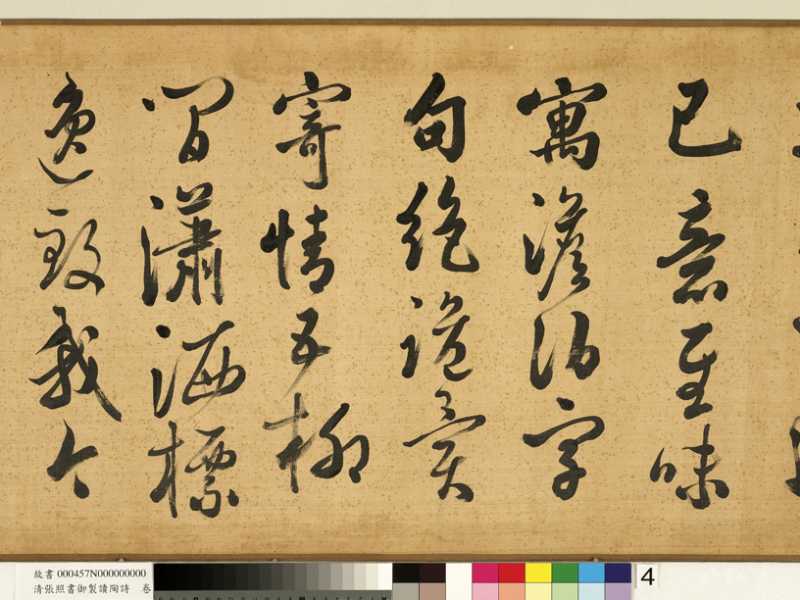 己意至味
寓澹泊字
句絶詭異
寄情五柳
間瀟洒標
逸致我今
故書 000457N000000000
清張照書御製讀陶詩 卷
4